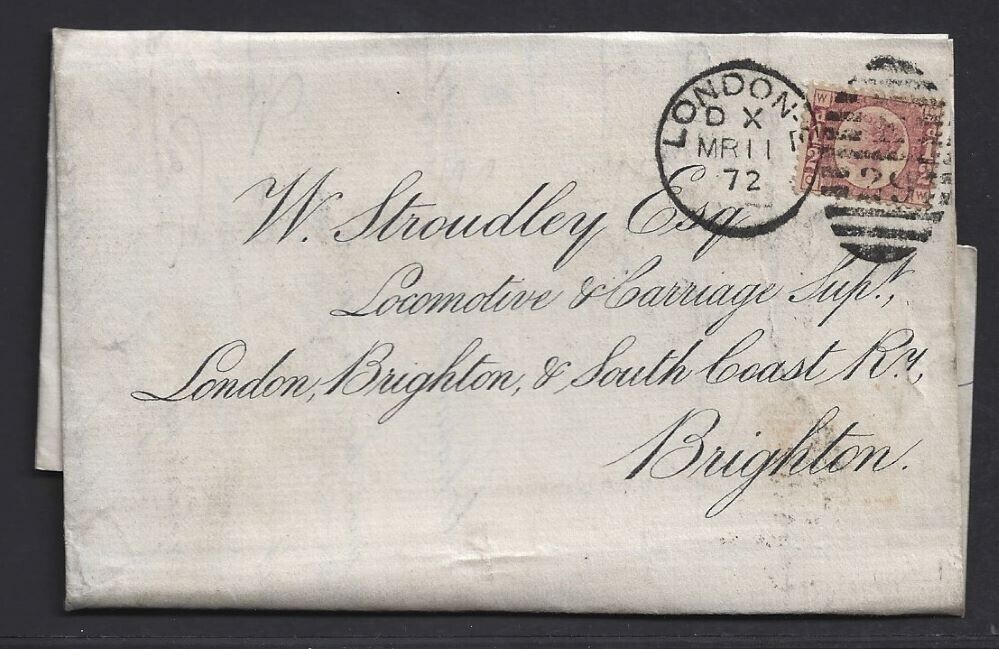 LONDON-E
D X
MR 11
72
W. Stroudley Esq
Locomotive & Carriage Supt.,
London, Brighton, & South Coast Ry,
Brighton.